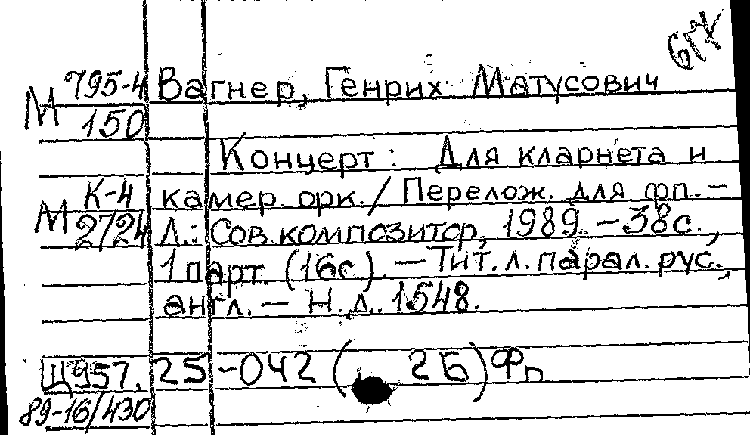 617
М 795-4/150 Вагнер, Генрих Матусович
Концерт: Для кларнета и
М К-4/2724 камер. орк. / Перелож. для фп. –
Л.: Сов. композитор, 1989. – 38с.,
1 парт. (16с). – Тит. л. парал. рус.,
англ. – Н. д. 1548.
Ц957. 25-042 ( 2Б) Фп
89-16/430